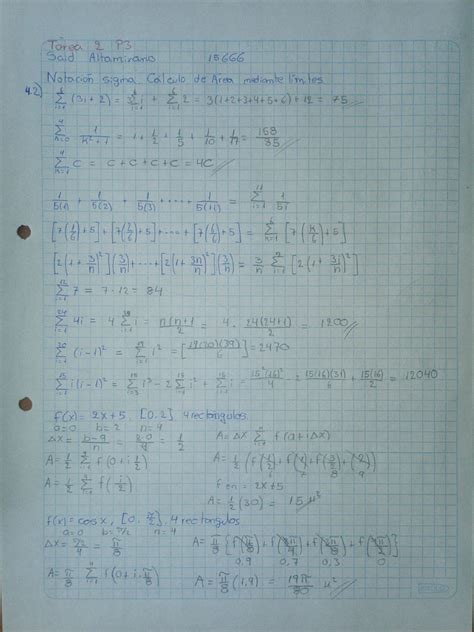 Tarea 2 P3
Said Altamirano 15666
Notación sigma. Cálculo de Area mediante límites.
4.2) ∑_{i=1}^{6} (3i + 2) = 3∑_{i=1}^{6} i + ∑_{i=1}^{6} 2 = 3(1+2+3+4+5+6) + 12 = 75
∑_{k=0}^{4} 1/(k²+1) = 1 + 1/2 + 1/5 + 1/10 + 1/17 = 158/85
∑_{k=1}^{4} C = C + C + C + C = 4C
1/5(1) + 1/5(2) + 1/5(3) + ···· + 1/5(11) = ∑_{i=1}^{11} 1/5i
[7(1/6)+5] + [7(2/6)+5] + ··· + [7(6/6)+5] = ∑_{k=1}^{6} [7(k/6)+5]
[2(1+3/n)²](3/n) + ··· + [2(1+3n/n)²](3/n) = 3/n ∑_{i=1}^{n} [2(1+3i/n)²]
∑_{i=1}^{12} 7 = 7·12 = 84
∑_{i=1}^{24} 4i = 4∑_{i=1}^{24} i = n(n+1)/2 = 4 · 24(24+1)/2 = 1200
∑_{i=1}^{20} (i-1)² = ∑_{i=1}^{19} i² = [19(20)(39)/6] = 2470
∑_{i=1}^{15} i(i-1)² = ∑_{i=1}^{15} i³ - 2∑_{i=1}^{15} i² + ∑_{i=1}^{15} i = 15²(16)²/4 = 15(16)(31)/6 + 15(16)/2 = 12040
f(x) = 2x+5, [0,2], 4 rectángulos.
a=0 b=2 n=4
Δx = b-a/n = 2-0/4 = 1/2
A = Δx ∑_{i=1}^{n} f(a+iΔx)
A = 1/2 ∑_{i=1}^{4} f(0+i 1/2)
A = 1/2 ∑_{i=1}^{4} f(i/2)
f en = 2x+5
A = 1/2 (30) = 15 u²
f(x) = cos x, [0, π/2], 4 rectángulos
a=0 b=π/2 n=4
Δx = π/2/4 = π/8
0,9 0,7 0,3 0
A = π/8 ∑_{i=1}^{4} f(0+i·π/8)
A = π/8 (1,9) = 19π/80 u²